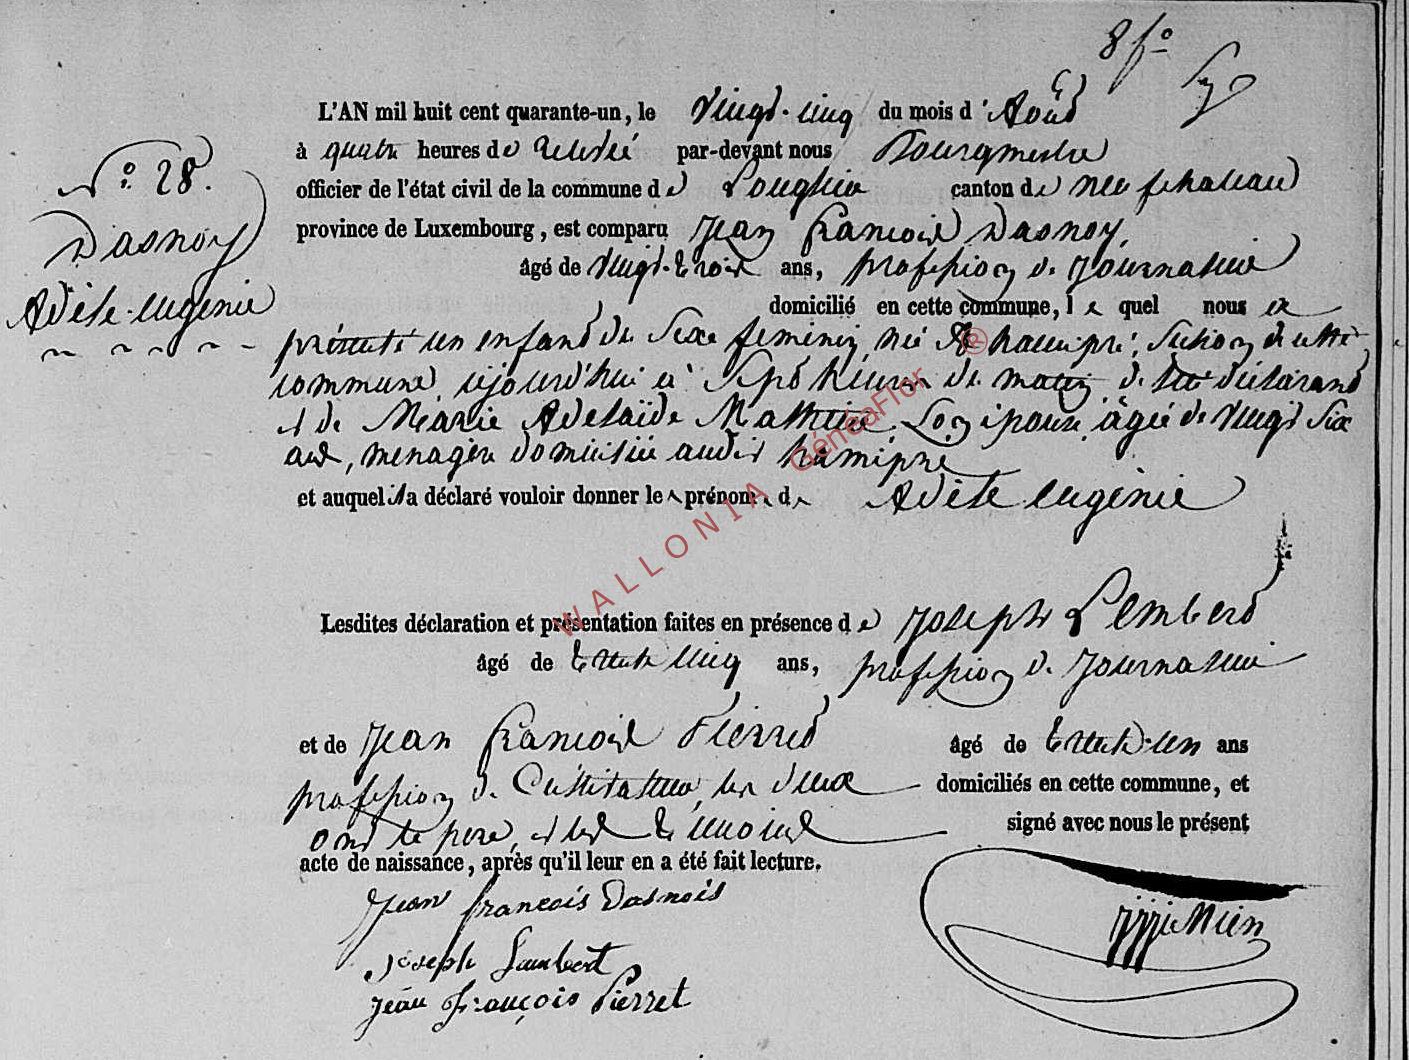 8 f°
L'AN mil huit cent quarante-un, le Vingt-cinq du mois d'Août
à quatre heures de relevée par-devant nous Bourgmestre
N° 28.
officier de l'état civil de la commune de Longlier canton de neufchateau
Dasnoy
province de Luxembourg, est comparu Jean françois Dasnoy,
âgé de Vingt-trois ans, profession de Journalier
Adèle-eugénie
domicilié en cette commune, lequel nous a
présenté un enfant du sexe féminin, né à hamipré, section de cette
commune, ajourd'hui à Sept heures du matin, de lui déclarant
et de Marie Adelaïde Mathieu, Son épouse, âgée de Vingt Six
ans, menagère domiciliée audit hamipré
et auquel il a déclaré vouloir donner le prénom de Adèle eugénie
WALLONIA GénéaFlor ®
Lesdites déclaration et présentation faites en présence de Joseph Lembert
âgé de trente cinq ans, profession de Journalier
et de Jean françois Pierret âgé de trente-un ans
profession de Cultivateur, les deux domiciliés en cette commune, et
ont le père, et les témoins signé avec nous le présent
acte de naissance, après qu'il leur en a été fait lecture.
Jean françois Dasnois
Joseph Lambert
jean françois Pierret